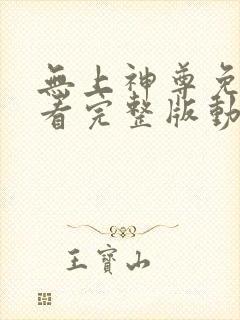 無上神尊免
看完整版動
王寶山